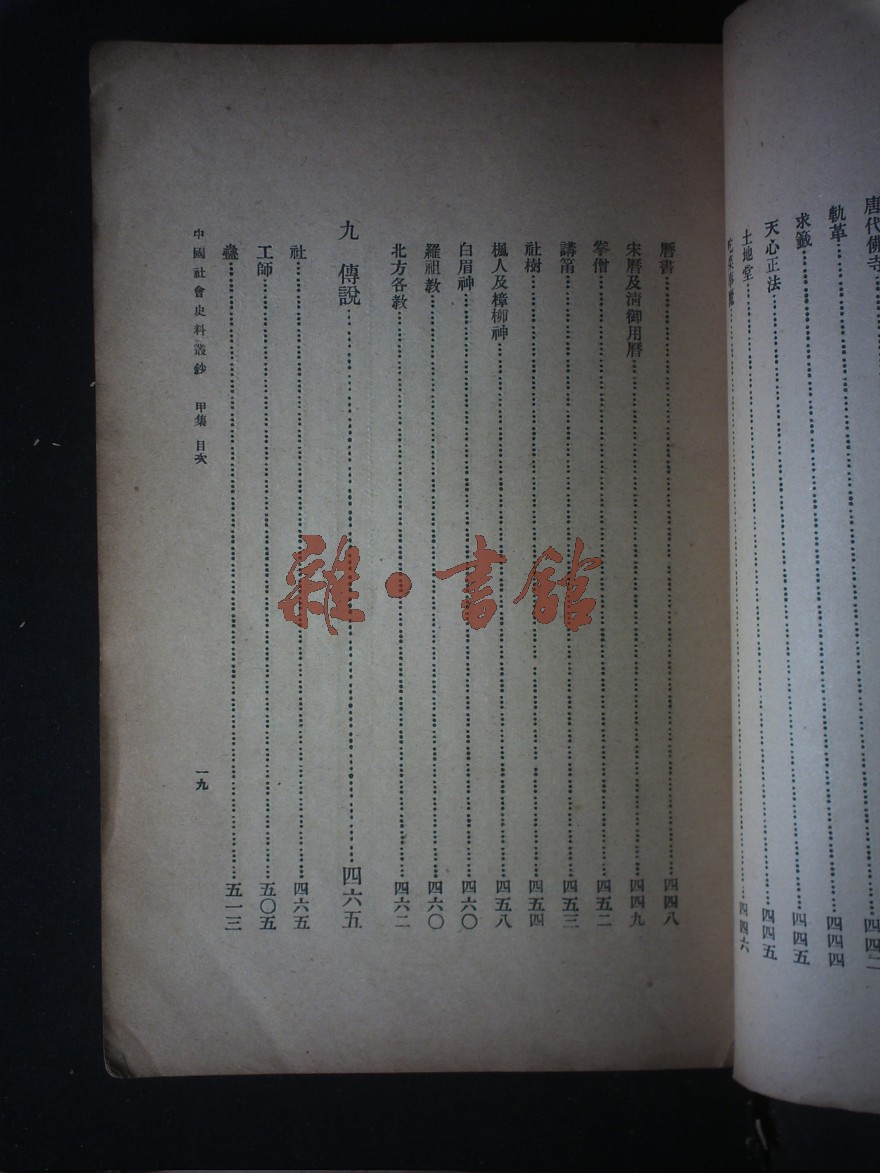 唐代佛寺……四四二
軌革……四四四
求籤……四四五
天心正法……四四五
土地堂……四四六
曆書……四四八
宋曆及清御用曆……四四九
拏僧……四五二
講筩……四五三
社樹……四五四
楓人及樟柳神……四五八
白眉神……四六〇
羅祖教……四六〇
北方各教……四六二
九 傳說……四六五
社……四六五
工師……五〇五
蠱……五一三
中國社會史料叢鈔 甲集 目次 一九
雜·書館